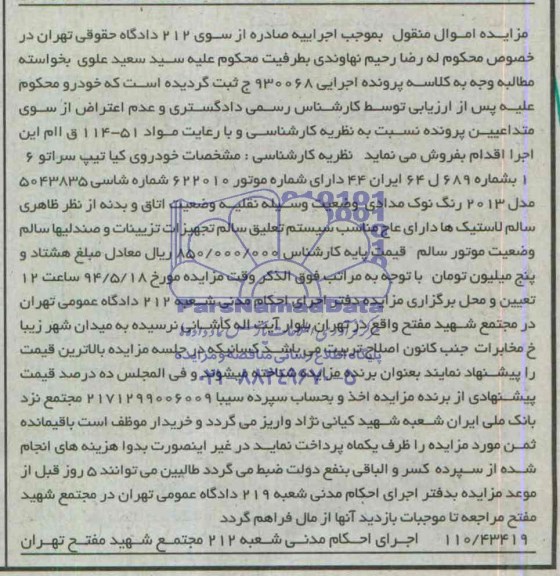 مزایده اموال منقول بموجب اجراییه صادره از سوی ۲۱۲ دادگاه حقوقی تهران در
خصوص محکوم له رضا رحیم نهاوندی بطرفیت محکوم علیه سید سعید علوی بخواسته
مطالبه وجه به کلاسه پرونده اجرایی ۹۳۰۰۶۸ ج ثبت گردیده است که خودرو محکوم
علیه پس از ارزیابی توسط کارشناس رسمی دادگستری و عدم اعتراض از سوی
متداعیین پرونده نسبت به نظریه کارشناسی و با رعایت مواد ۵۱-۱۱۴ ق اام این
اجرا اقدام بفروش می نماید نظریه کارشناسی : مشخصات خودروی کیا تیپ سراتو ۶
۱ بشماره ۶۸۹ ل ۶۴ ایران ۴۴ دارای شماره موتور ۶۲۲۰۱۰ شماره شاسی ۵۰۴۳۸۳۵
مدل ۲۰۱۳ رنگ نوک مدادی وضعیت وسیله نقلیه وضعیت اتاق و بدنه از نظر ظاهری
سالم لاستیک ها دارای عاج مناسب سیستم تعلیق سالم تجهیزات تزیینات و صندلیها سالم
وضعیت موتور سالم قیمت پایه کارشناس ۸۵۰/۰۰۰/۰۰۰ ریال معادل مبلغ هشتاد و
پنج میلیون تومان با توجه به مراتب فوق الذکر وقت مزایده مورخ ۹۴/۵/۱۸ ساعت ۱۲
تعیین و محل برگزاری مزایده دفتر اجرای احکام مدنی شعبه ۲۱۲ دادگاه عمومی تهران
ParsNamadData
در مجتمع شهید مفتح واقع در تهران بلوار آیت اله کاشانی نرسیده به میدان شهر زیبا
خ مخابرات جنب کانون اصلاح تربیت می باشد کسانیکه در جلسه مزایده بالاترین قیمت
پایگاه اطلاع رسانی مناقصه و مزایده
را پیشنهاد نمایند بعنوان برنده مزایده شناخته میشوند و فی المجلس ده درصد قیمت
۰۲۱-۸۸۳۴۹۶۷۰-۵
پیشنهادی از برنده مزایده اخذ و بحساب سپرده سیبا ۲۱۷۱۲۹۹۰۰۶۰۰۹ مجتمع نزد
بانک ملی ایران شعبه شهید کیانی نژاد واریز می گردد و خریدار موظف است باقیمانده
ثمن مورد مزایده را ظرف یکماه پرداخت نماید در غیر اینصورت بدوا هزینه های انجام
شده از سپرده کسر و الباقی بنفع دولت ضبط می گردد طالبین می توانند ۵ روز قبل از
موعد مزایده بدفتر اجرای احکام مدنی شعبه ۲۱۹ دادگاه عمومی تهران در مجتمع شهید
مفتح مراجعه تا موجبات بازدید آنها از مال فراهم گردد
۱۱۰/۴۳۴۱۹ اجرای احکام مدنی شعبه ۲۱۲ مجتمع شهید مفتح تهران